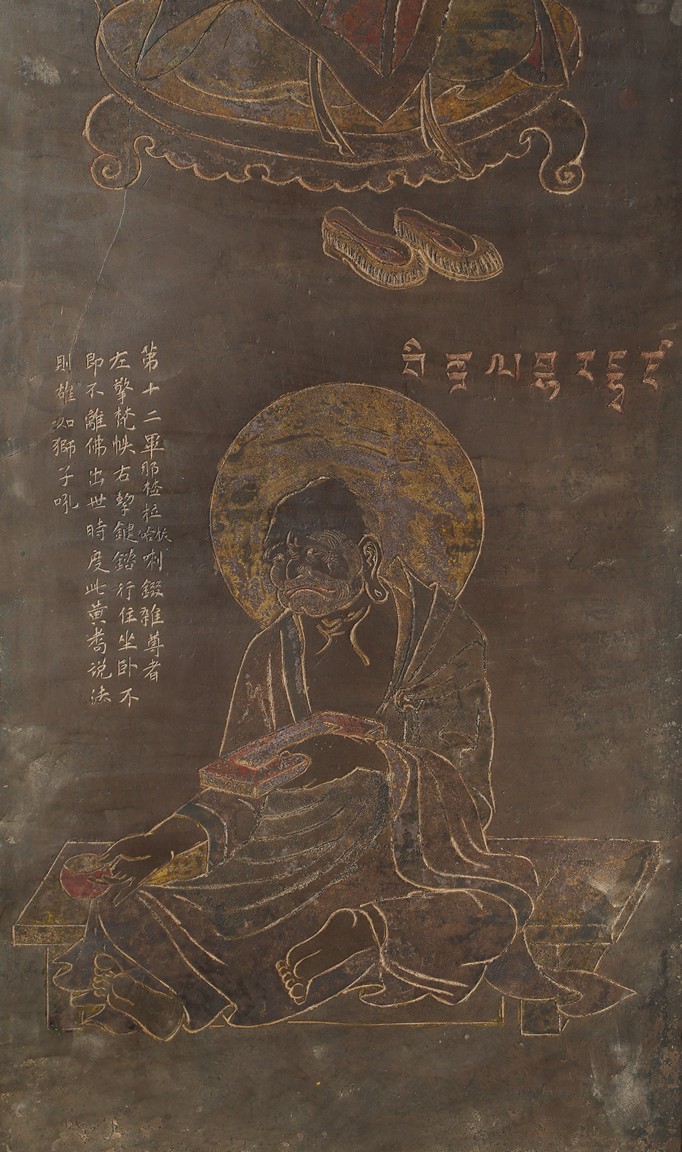 第十二畢那楂拉拔哈喇錣雜尊者
左擎梵帙右挈鍵行住坐卧不
即不離佛出世時度此黃耇說法
則雄如獅子吼